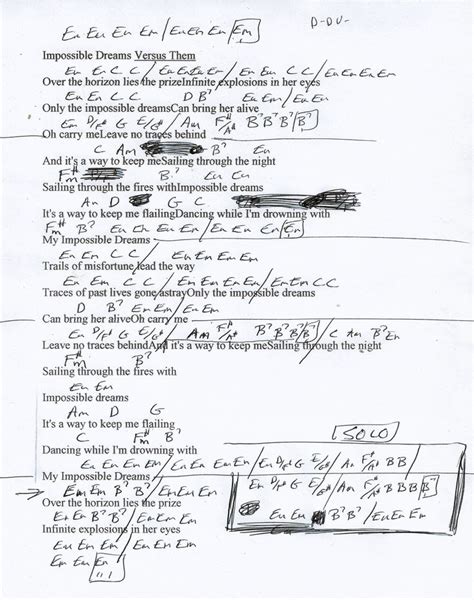 Em Em Em Em / Em Em Em [Em] D-DU-
Impossible Dreams Versus Them
Em Em C C / Em Em Em Em / Em Em C C / Em Em Em Em
Over the horizon lies the prizeInfinite explosions in her eyes
Em Em C C D B7 Em Em / Em Em
Only the impossible dreamsCan bring her alive
Em D/F# G E/G# / Am F#/A# B7 B7 B7 [B7]
Oh carry meLeave no traces behind
C Am B7 Em
And it's a way to keep meSailing through the night
F#m B7 Em Em
Sailing through the fires withImpossible dreams
Am D G C
It's a way to keep me flailingDancing while I'm drowning with
F#m B7 Em Em Em Em / Em Em Em [Em]
My Impossible Dreams
Em Em C C / Em Em Em Em
Trails of misfortune lead the way
Em Em C C / Em Em Em Em / Em Em C C
Traces of past lives gone astrayOnly the impossible dreams
D B7 Em Em / Em Em
Can bring her aliveOh carry me
Em D/F# G E/G# / Am F#/A# B7 B7 B7 [B7] / C Am B7 Em
Leave no traces behindAnd it's a way to keep meSailing through the night
F#m B7
Sailing through the fires with
Em Em
Impossible dreams
Am D G
It's a way to keep me flailing
C F#m B7 [SOLO]
Dancing while I'm drowning with
Em Em Em Em / Em Em Em Em / Em D/F# G E/G# / Am F#/A# B B
My Impossible Dreams
Em D/F# G E/G# / Am F#/A# B B B [B7]
→ Em Em B7 B7 / Em Em Em
Over the horizon lies the prize
Em Em B7 B7 / Em Em Em
Em Em B7 B7 / Em Em Em
Infinite explosions in her eyes
Em Em Em Em / Em Em Em Em
Em Em Em [Em]